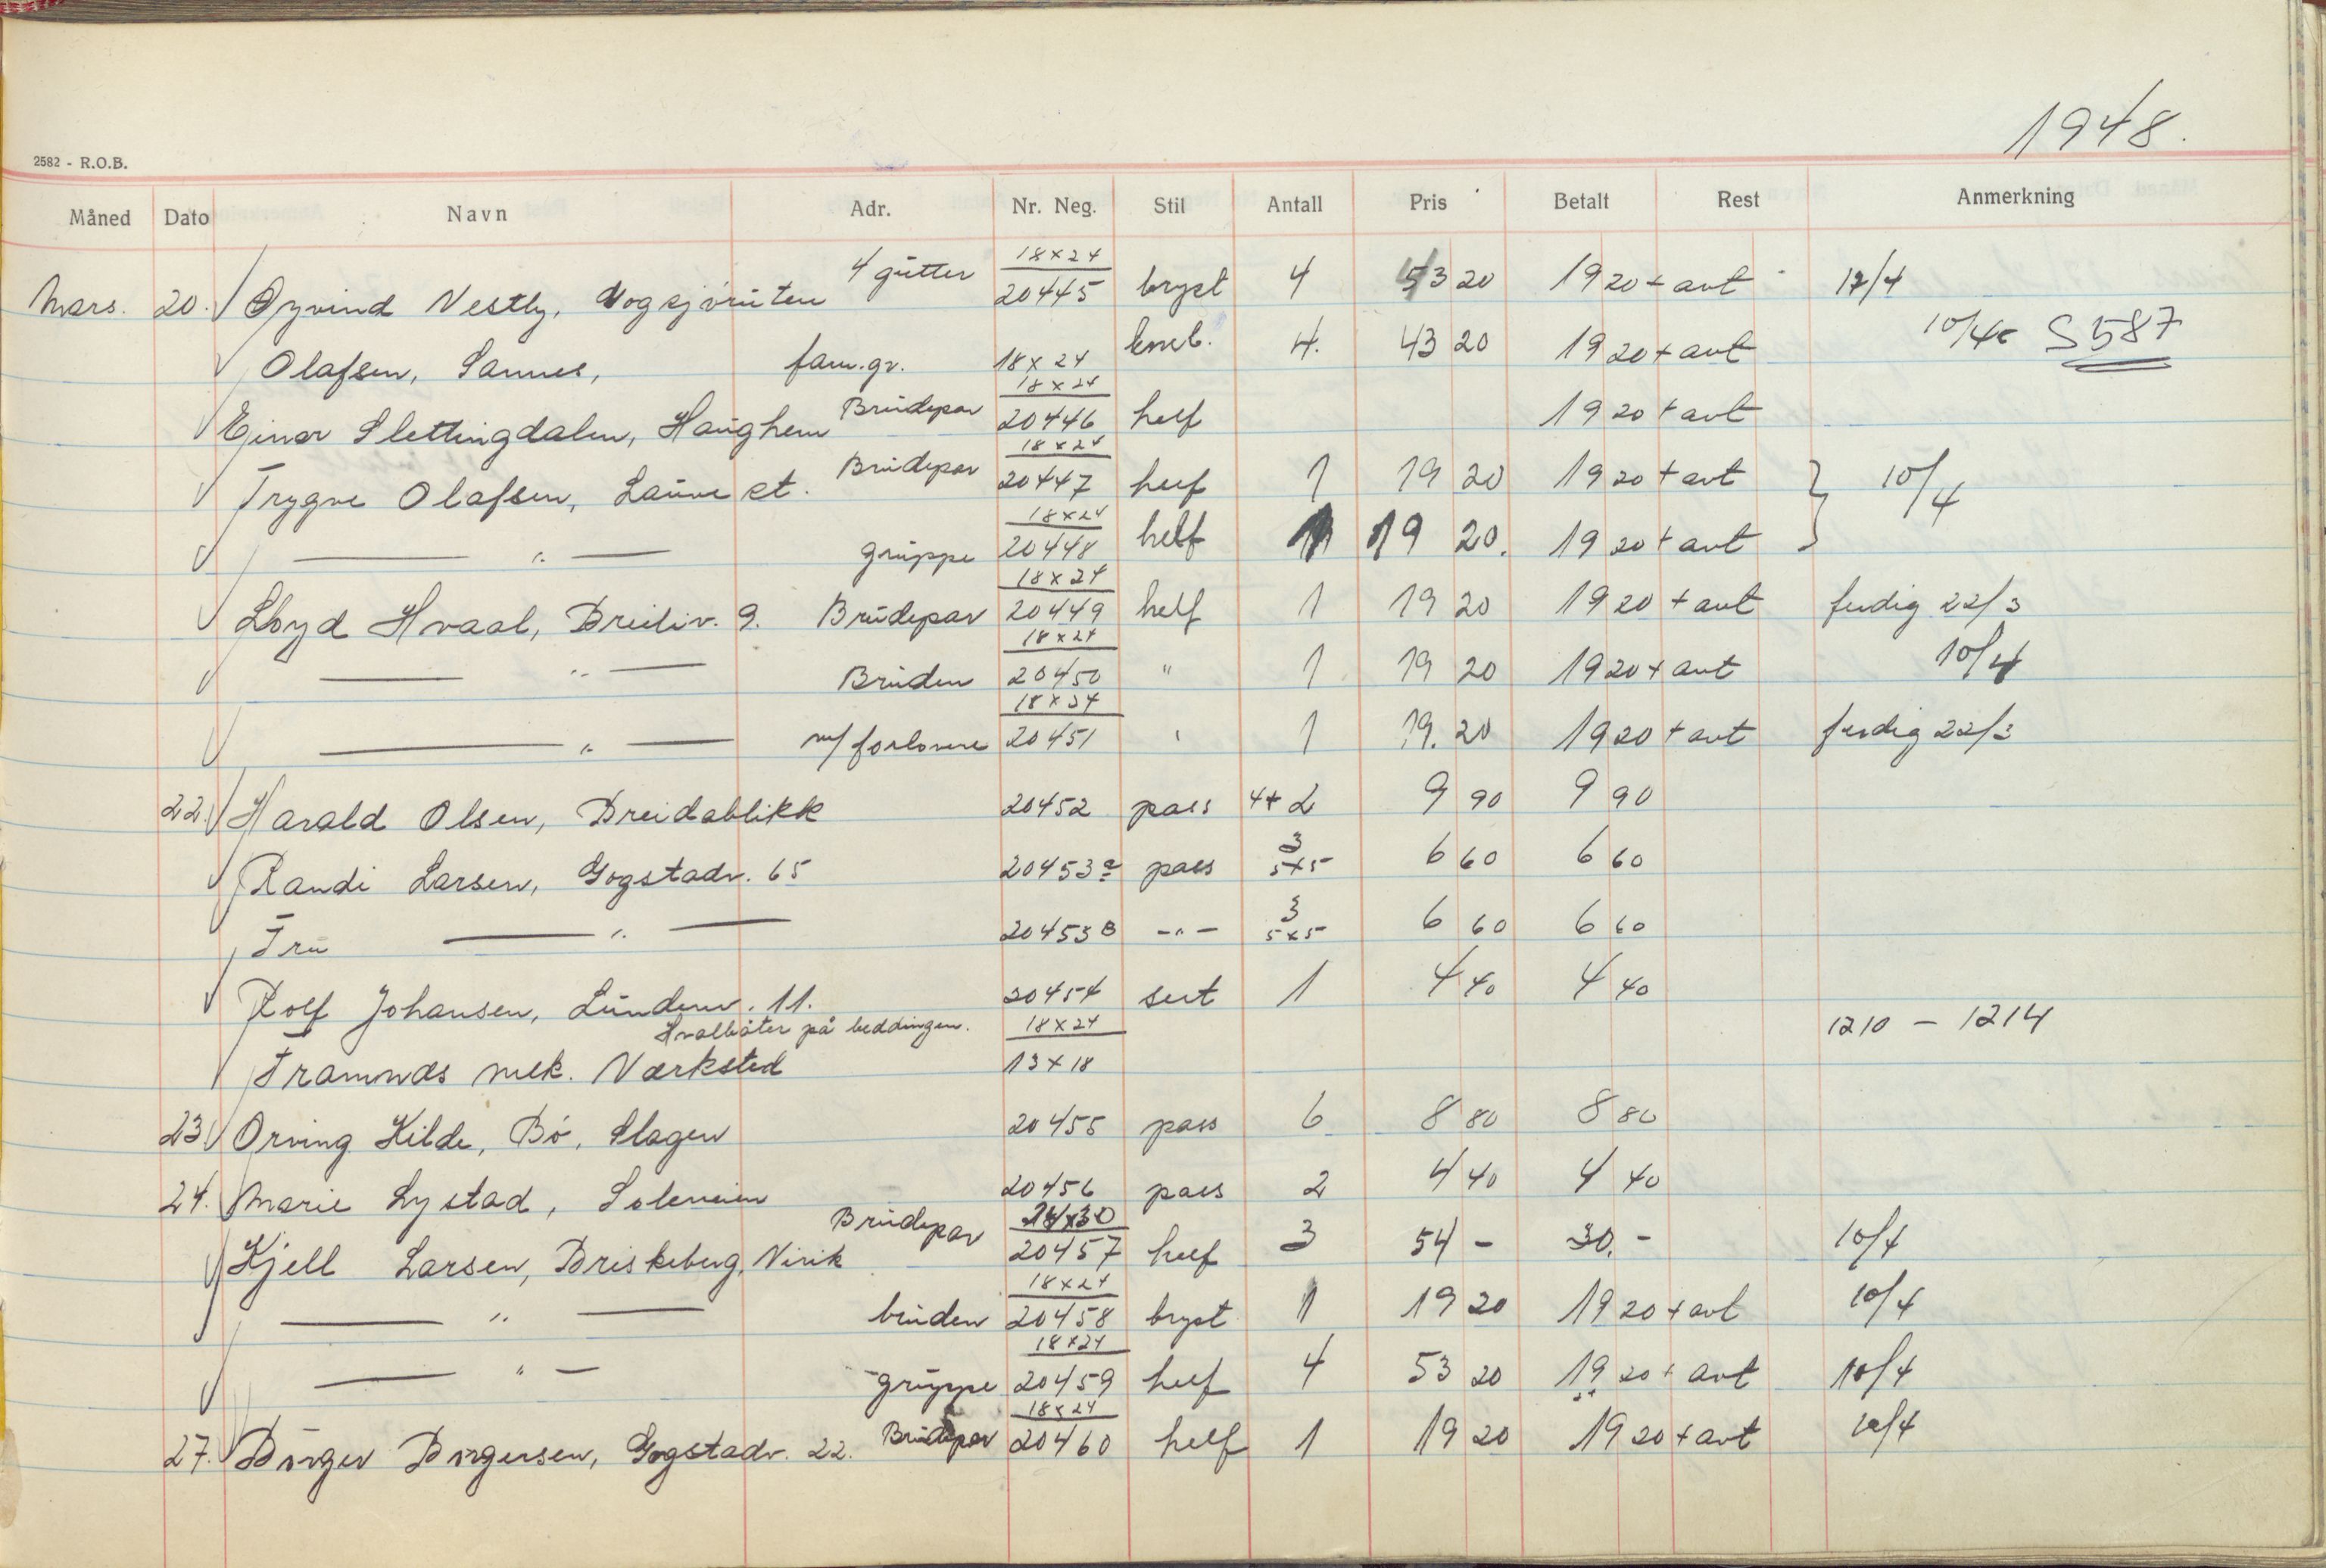 1948.
2582 - R.O.B.
Måned Dato Navn Adr. Nr. Neg. Stil Antall Pris Betalt Rest Anmerkning
Mars. 20. Øyvind Vestly, 4 gutter 18x24 20445 bryst 4 53 20 19 20 + avt 17/4
Olafsen, Sannes, fam.gr. 18x24 kneb. 4. 43 20 19 20 + avt 10/4 S587
Einar Slettingdalen, Haughem Brudepar 18x24 20446 helf 19 20 + avt
Trygve Olafsen, Lauve st. Brudepar 18x24 20447 helf 1 19 20 19 20 + avt } 10/4
— " — gruppe 18x24 20448 helf 1 19 20. 19 20 + avt
Lloyd Hvaal, Breiliv. 9. Brudepar 18x24 20449 helf 1 19 20 19 20 + avt ferdig 22/3
— " — Bruden 18x24 20450 " 1 19 20 19 20 + avt 10/4
— " — m/ forlovere 18x24 20451 " 1 19. 20 19 20 + avt ferdig 22/3
22. Harald Olsen, Breidablikk 20452 pass 4+2 9 90 9 90
Randi Larsen, Gogstadv. 65 20453a pass 3 5x5 6 60 6 60
Fru — " — 20453B -"- 3 5x5 6 60 6 60
Rolf Johansen, Lundenv. 11. 20454 sert 1 4 40 4 40
Hvalbåter på beddingen. 18x24 1210 - 1214
Framnæs mek. Værksted 13x18
23. Orving Kilde, Bö, Slagen 20455 pass 6 8 80 8 80
24. Marie Lystad, Soleveien 20456 pass 2 4 40 4 40
Kjell Larsen, Briskeberg, Virik Brudepar 24x30 20457 helf 3 54 - 30. - 10/4
— " — bruden 18x24 20458 bryst 1 19 20 19 20 + avt 10/4
— " — gruppe 18x24 20459 helf 4 53 20 19 20 + avt 10/4
27. Börger Börgersen, Gogstadv. 22. Brudepar 18x24 20460 helf 1 19 20 19 20 + avt 10/4